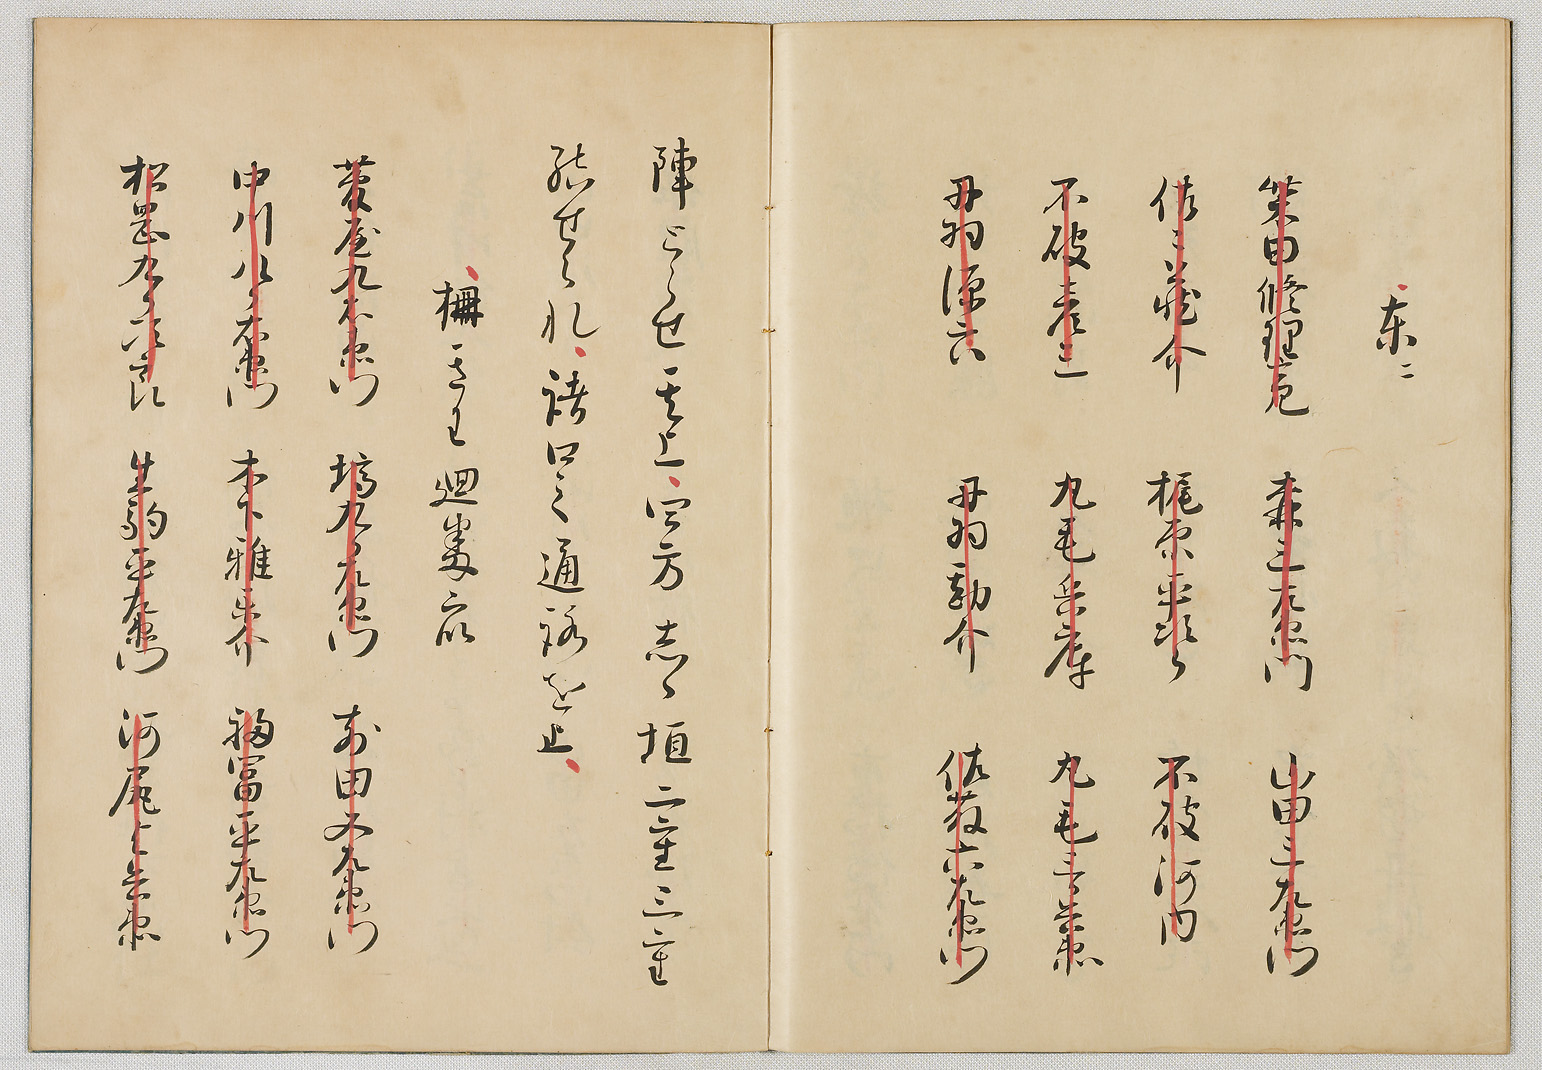 東ニ
柴田修理亮　森三左衛門　山田三左衛門
佐々蔵介　梶原平次郎　不破河内
不破彦三　丸毛兵庫　丸毛三郎兵衛
丹羽源六　丹羽勘介　佐藤六左衛門
陣とらせ其上四方志ゝ垣二重三重
結せられ諸口之通路を止
柵きわ廻
菅屋九右衛門　塙九郎左衛門　前田又左衛門
中川八郎右衛門　木下雅楽介　福富平左衛門
松岡九郎次郎　生駒平左衛門　河尻与兵衛